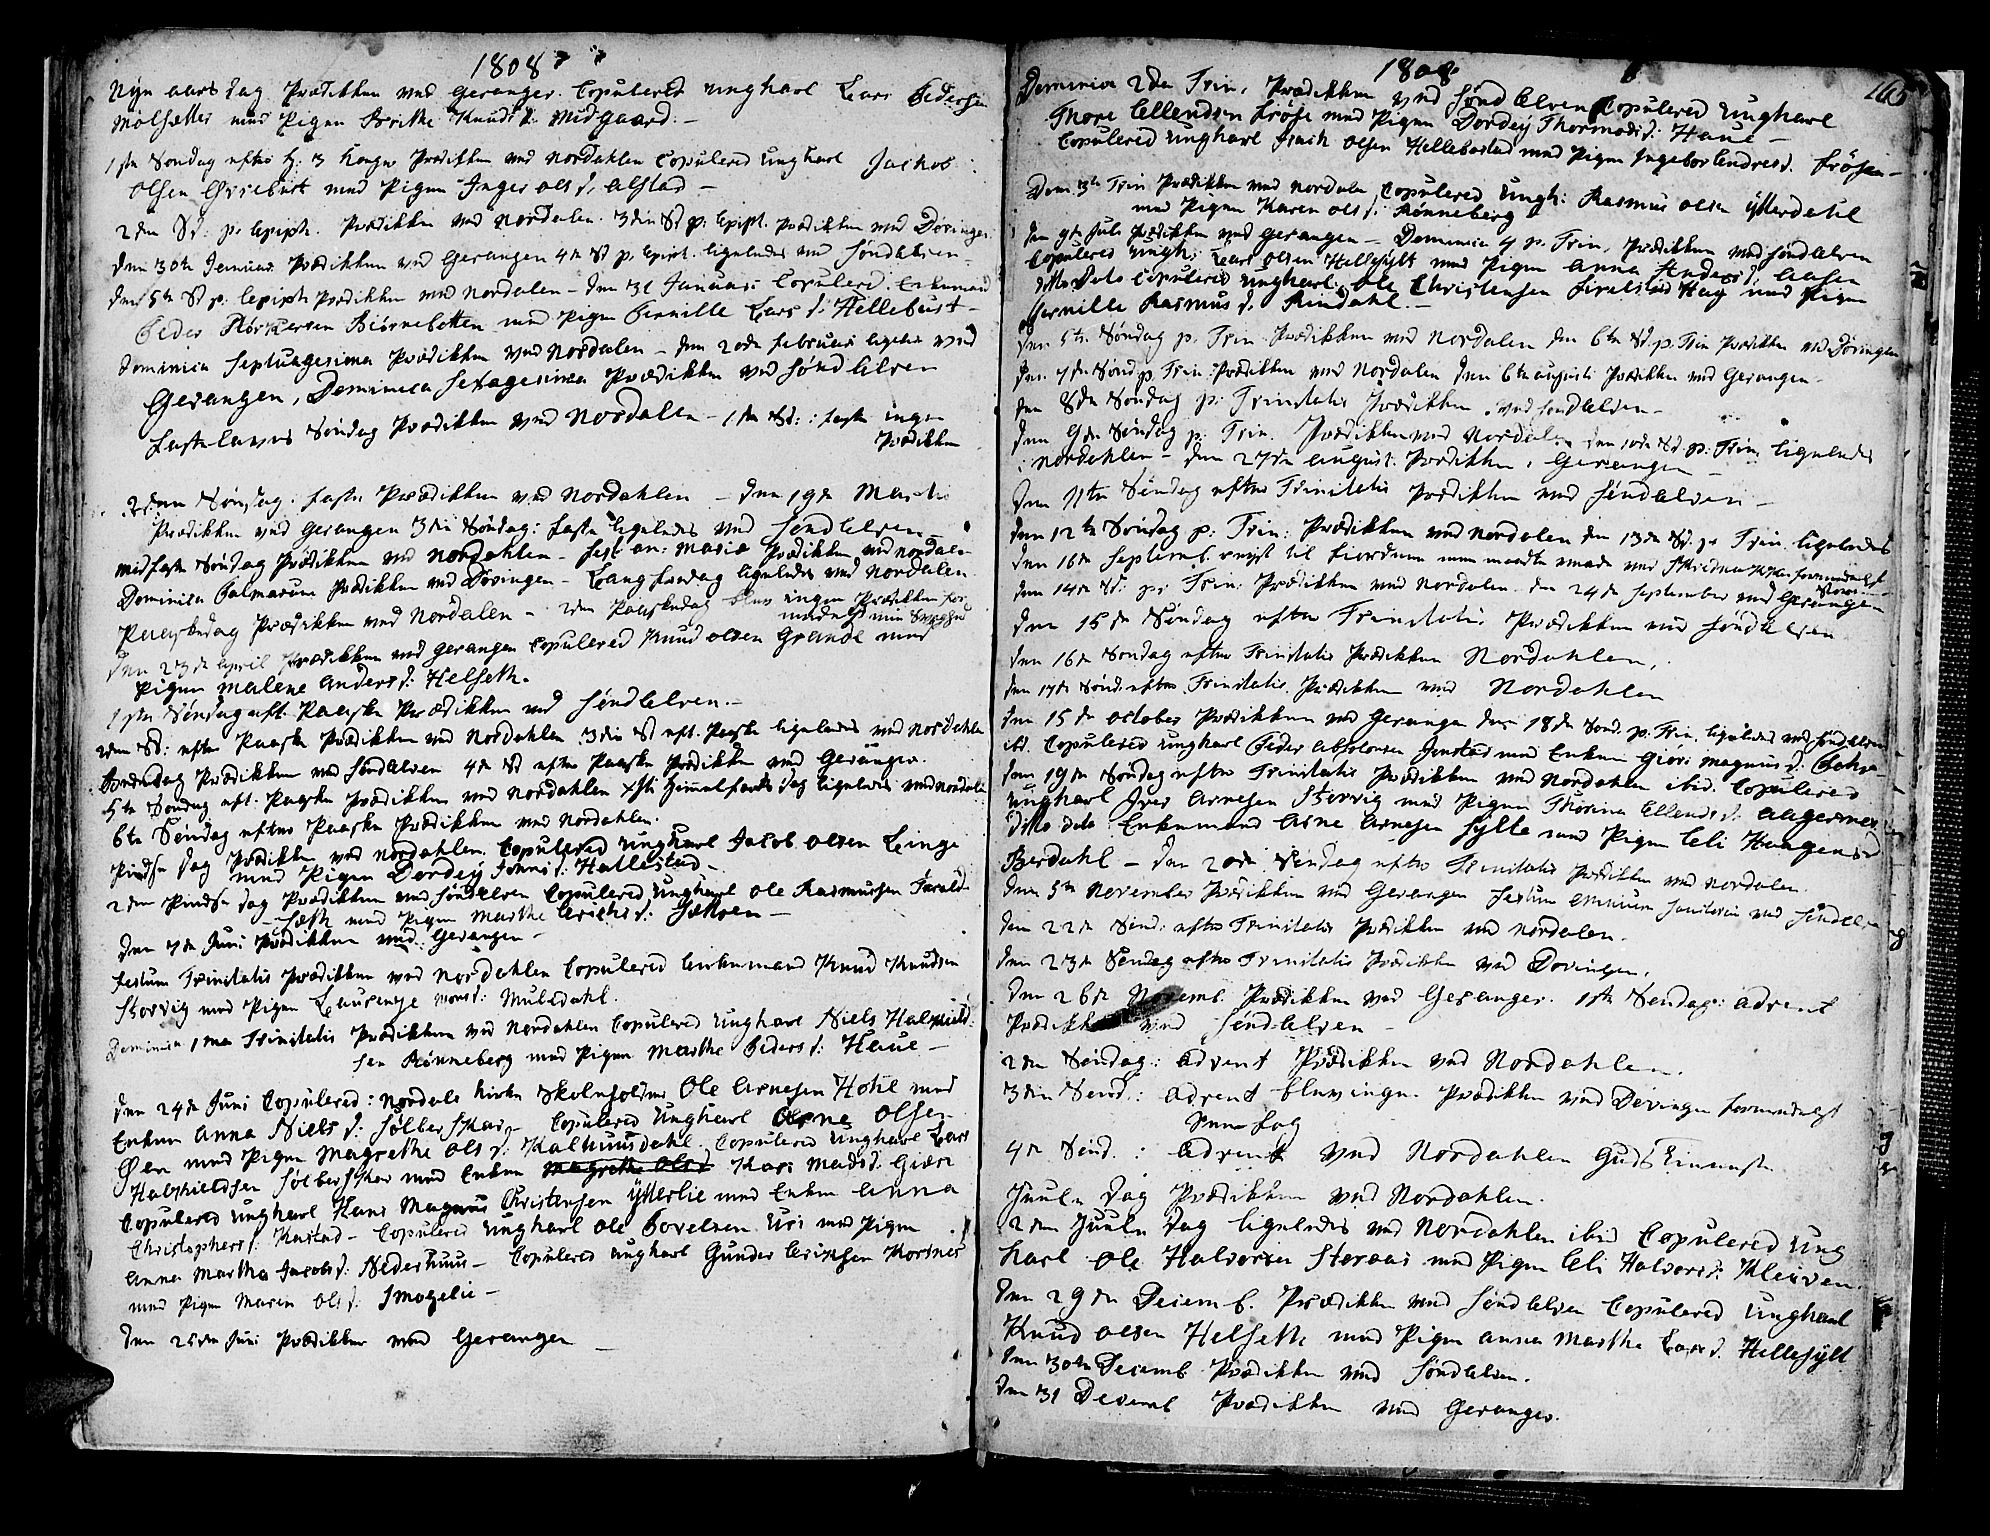 1808
Nyn aars dag Prædikken ved Geranger. Copulered Ungkarl Lars Pedersen
Molsætter med Pigen Brithe Knuds d: Midgaard. –
1ste Søndag efter H: 3 Konger Prædikken ved Nordahlen Copulered Ungkarl Jachob
Olsen med Pigen Inger Ols d. Alstad –
2den Sd: p. Epiph. Prædikken ved Nordalen. 3die Sd p. Epiph. Prædikken ved Døvingen
den 30te Januar. Prædikken ved Gerangen 4de Sd p. Epiph. ligeledes ved Søndelven –
den 5te Sd p. Epiph Prædikken ved Nordalen – den 31 Januari Copulered Enkemand
Peder Biørnebotten med Pigen Pernille Lars d. Hellebust –
Dominica Septuagesima Prædikken ved Nordalen – den 20de Februari ligeledes ved
Gerangen, Dominica Sexagesima Prædikken ved Søndelven
Fastelavns Søndag Prædikken ved Nordalen – 1ste Sd: i Faste ingen
Prædikken
2den Søndag i Faste Prædikken ved Nordahlen – den 19de Martii
Prædikken ved Gerangen 3die Søndag i Faste ligeledes ved Søndelven
Midfaste Søndag Prædikken ved Nordahlen – Fest: an: Maria Prædikken ved Nordalen
Dominica Palmarum Prædikken ved Døvingen – Langfredag ligeledes ved Nordalen
Paaskedag Prædikken ved Nordalen – 2den Paaskedag blev ingen Prædikken for
medelst min
den 23de April Prædikken ved Gerangen Copulered Knud Olsen Grande med
Pigen Malene Anders d: Helseth.
1ste Søndag eft. Paaske Prædikken ved Søndelven. –
2den Sd: efter Paaske Prædikken ved Nordahlen 3die Sd eft. Paaske ligeledes ved Nordahlen
Bededag Prædikken ved Søndelven 4de Sd efter Paaske Prædikken ved Geranger.
5te Søndag eft. Paaske Prædikken ved Nordahlen Christi Himmelfarts dag ligeledes ved Nordalen
6te Søndag efter Paaske Prædikken ved Nordahlen.
Pindse dag Prædikken ved Nordahlen. Copulered Ungkarl Jacob Olsen Linge
med Pigen Dordey Jonns d: Hallestad –
2den Pindse dag Prædikken ved Søndelven Copulered Ungkarl Ole Rasmusen
med Pigen Marthe Erichs d:
den 7de Juni Prædikken ved Gerangen –
Festum Trinitatis Prædikken ved Nordahlen Copulered Enkemand Knud Knudsen
Storvig med Pigen Muldahl.
Dominica 1ma Trinitatis Prædikken ved Nordahlen Copulered Ungkarl Niels
sen Rønneberg med Pigen Marthe Peders d: Haue –
den 24de Juni Copulered i Nordals Kirke Skoleholder Ole Arnesen Hohl med
Enken Anna Niels d: Sølberskar – Copulered Ungkarl Arne Olsen
Øen med Pigen Magrethe Ols d. Kalhuusdahl. Copulered Ungkarl Lars
Halskieldsen Sølberskar med Enken Magrethe Ols d Kari Mads d.
Copulered Ungkarl Hans Magnus Christensen Ytterlie med Enken Anna
Christophers d. Kastad – Copulered Ungkarl Ole Povelsen Uri med Pigen
Anna Martha Jacobs d: – Copulered Ungkarl Gunder Erichsen Korsnes
med Pigen Maren Ols d. Smogelie –
den 25de Juni Prædikken ved Gerangen –
1808
165
Dominica 2den Trin. Prædikken ved Søndelven Copulered Ungkarl
Thore Ellendsen Frøse med Pigen Dordey Thormods d: Haue –
Copulered Ungkarl Olsen Hellebostad med Pigen Ingebor Endres d. Frøsen –
Dom: 3de Trin Prædikken ved Nordalen Copulered Ungk: Rasmus Olsen Ytterdahl
med Pigen Karen Ols d: Rønneberg
den 9de Juli Prædikken ved Gerangen – Dominica 4 p. Trin. Prædikken ved Søndelven
Copulered Ungk: Lars Olsen Hellesylt med Pigen Anna Anders d: Aasen
ditto Dato Copulered Ungkarl Ole Christensen Hag med Pigen
Pernille Rasmus d. Rindahl. –
den 5te Søndag p. Trin. Prædikken ved Nordalen den 6te Sd. p. Trin Prædikken ved Døvingen
den 7de Sønd p. Trin. Prædikken ved Nordalen den 6te Augusti Prædikken ved Gerangen –
den 8de Søndag p. Trinitatis Prædikken ved Søndelven –
den 9de Søndag p. Trin. Prædikken ved Nordalen den 10de Sd. p: Trin. ligeledes
i Nordahlen – den 27de August. Prædikken i Gerangen –
den 11te Søndag efter Trinitatis Prædikken ved Søndelven –
den 12te Søndag p: Trin: Prædikken ved Nordalen den 13de Sd. p. Trin. ligeledes
den 16de Septemb. reyst til Fiordene men maatte vende ved formedelst
Storm
den 14de Sd: p: Trin: Prædikken ved Nordalen. den 24de September ved Gerangen
den 15de Søndag efter Trinitatis Prædikken ved Søndelven
den 16de Søndag efter Trinitatis Prædikken Nordahlen.
den 17de Sønd. efter Trinitatis Prædikken ved Nordahlen
den 15de October Prædikken ved Geranger den 18de Sønd. p: Trin. ligeledes ved Søndelven
ibd. Copulered Ungkarl Peder Absolonsen med Enken Giøri Magnus d.
den 19de Søndag efter Trinitatis Prædikken ved Nordahlen ibid. Copulered
Ungkarl Iver Arnesen Storvig med Pigen Thorina Ellends d:
ditto dato: Enkemand Arne Arnesen Sylte med Pigen Eli Haagens d
Berdahl – den 20de Søndag efter Trinitatis Prædikken ved Nordalen.
den 5te November Prædikken ved Gerangen Festum Omnium Sanctorum ved Søndelven
den 22de Sønd: efter Trinitatis Prædikken ved Nordalen.
den 23de Søndag efter Trinitatis Prædikken ved Dovingen.
den 26de Novemb. Prædikken ved Geranger. 1ste Søndag i Advent
Prædikken ved Søndelven –
2den Søndag i Advent Prædikken ved Nordahlen.
3die Sønd: i Advent blev ingen Prædikken ved Døvingen formedelst
4de Sønd. i Advent ved Nordahlen Gudstieneste
Juule dag Prædikken ved Nordahlen.
2den Juule dag ligeledes ved Nordahlen ibid Copulered Ung
karl Ole Halvorsen Storaas med Pigen Eli Halvors d: Kleiven.
den 29de Decemb. Prædikken ved Søndelven Copulered Ungkarl
Knud Olsen Helseth med Pigen Anna Marthe Lars d. Hellesylt
den 30te Decemb Prædikken ved Søndelven.
den 31 Decemb Prædikken ved Geranger.